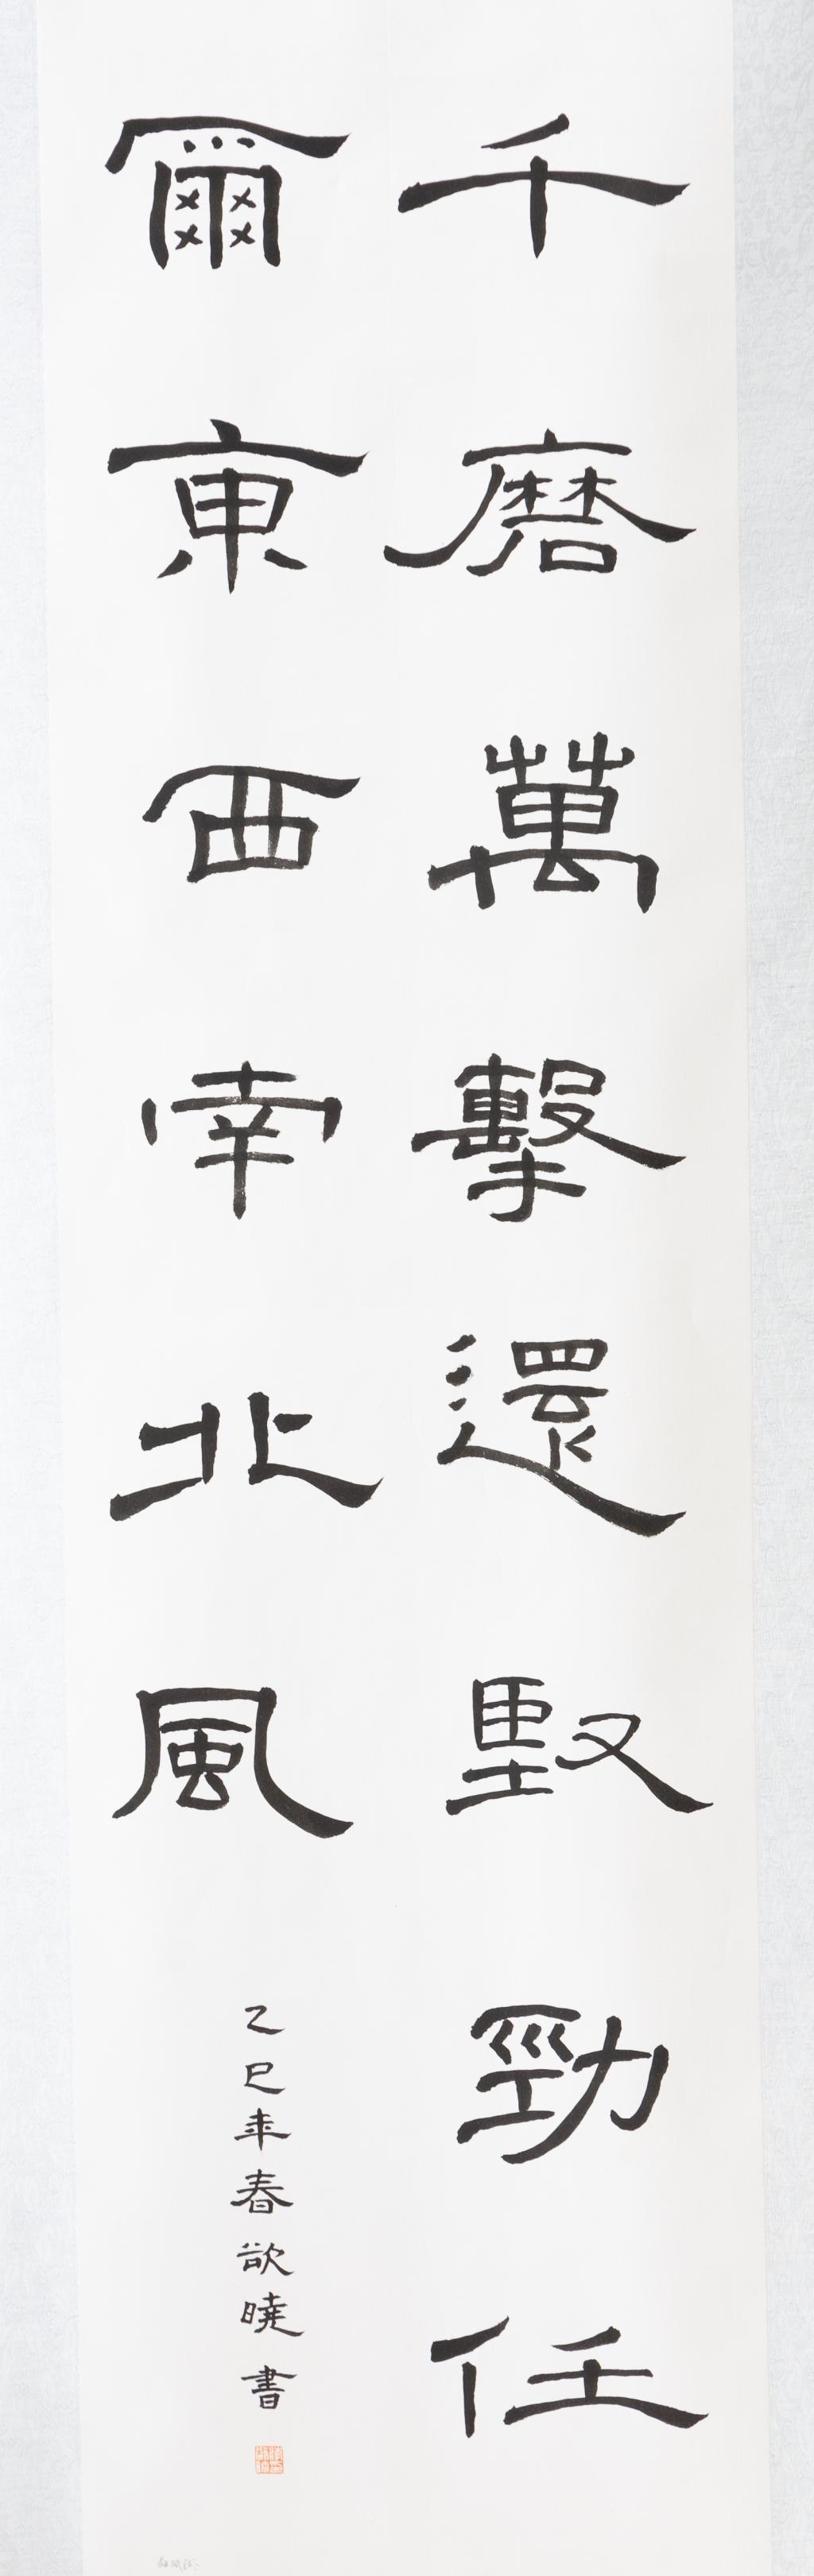 千磨萬擊還堅勁任
爾東西南北風
乙巳年春欲曉書